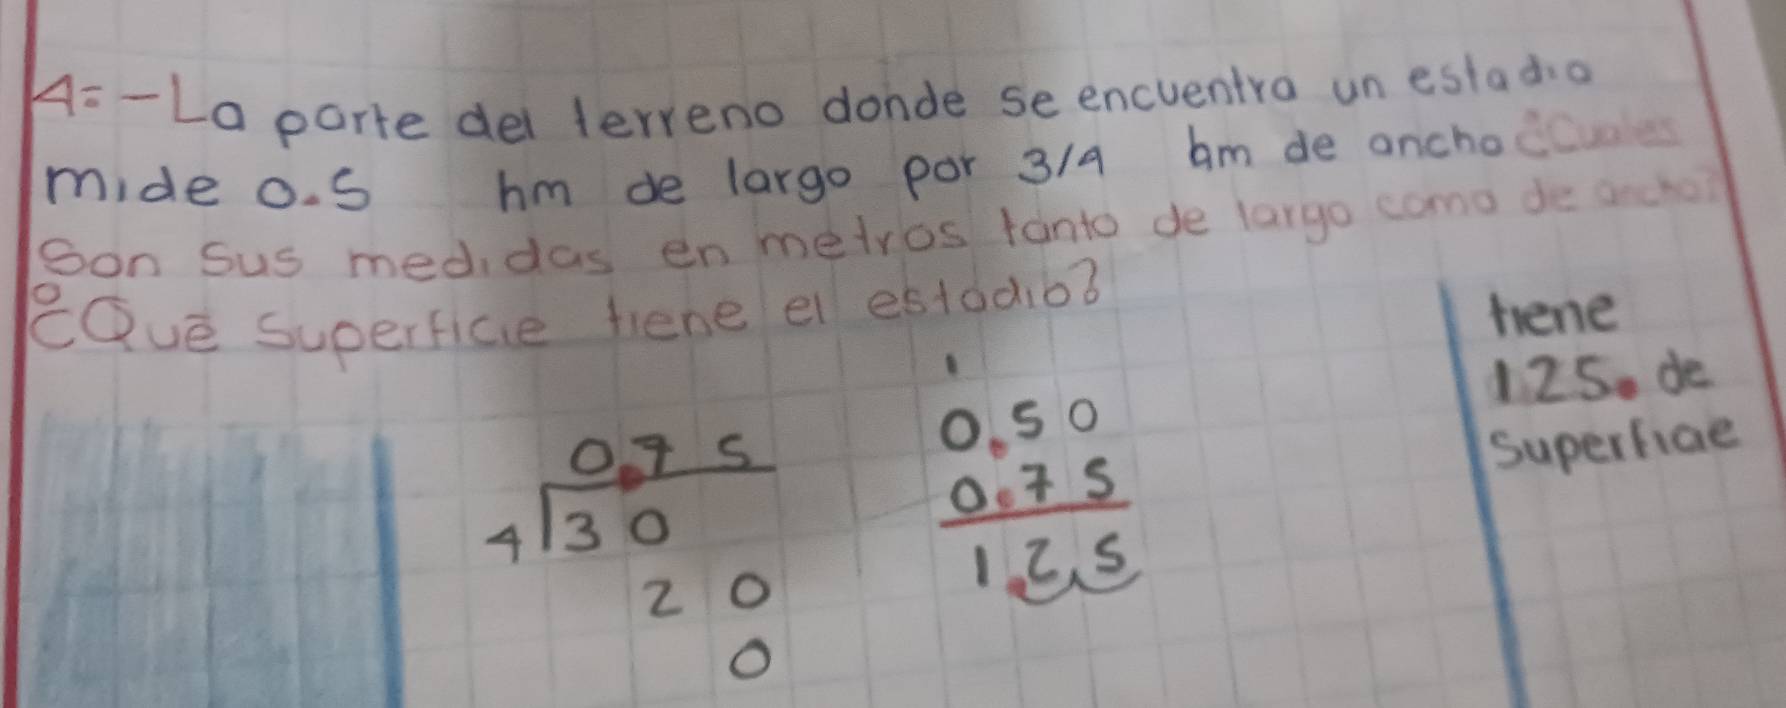 4=-La parte del terreno donde se encuentra un estadio
mide 0.5 hm de largo por 3/4 hm de ancho ¿Cuales
son sus medidas en metros tanto de largo como de ancho?
¿Qué superficie tiene el estadio?
0.75
4 30
20
0
1
0.50
0.75
1.25
tiene
125. de
superficie